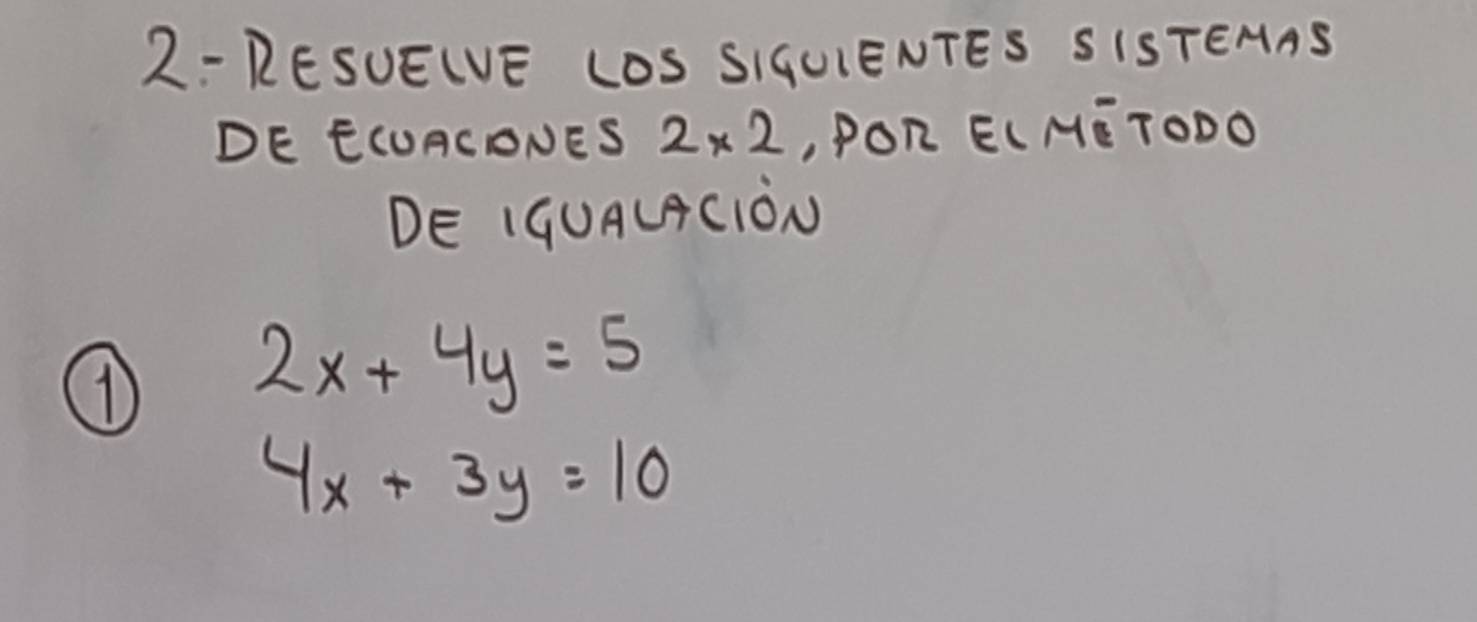 2.- RESUELVE LOS SIGUIENTES SISTEMAS
DE ECUACIONES 2x2, POR EL MÉTODO
DE IGUALACIÓN
① 2x + 4y = 5
4x + 3y = 10